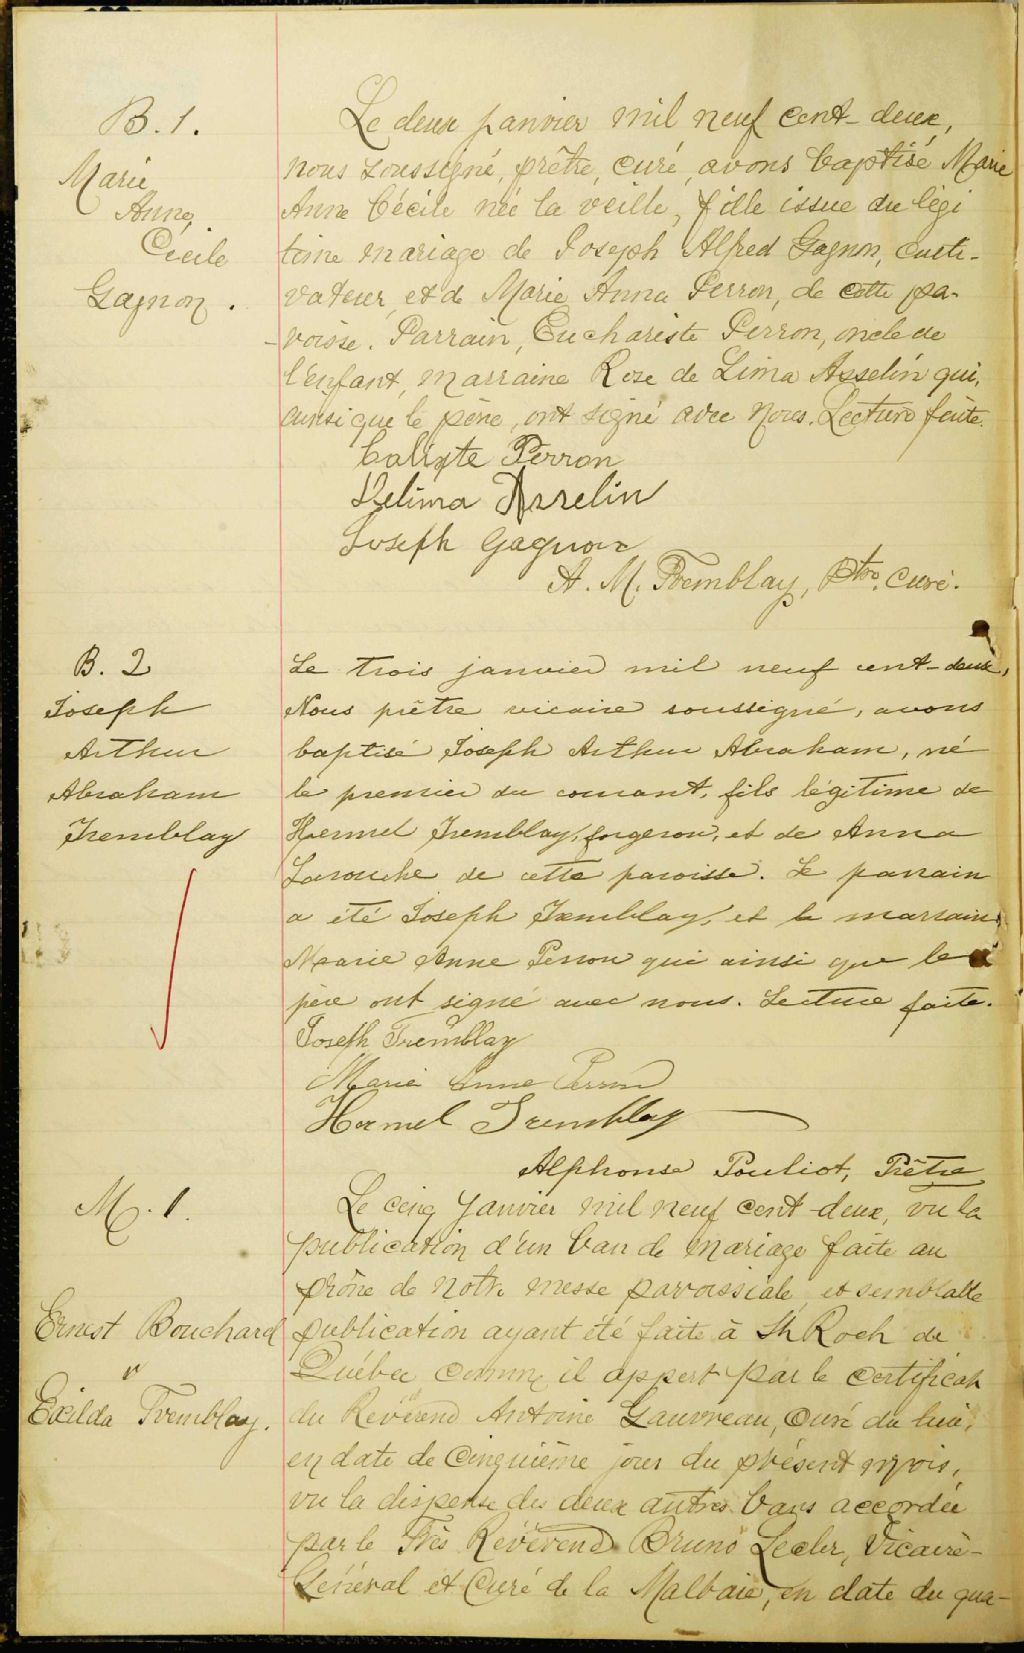 B. 1.
Marie
Anne
Cécile
Gagnon.
Le deux janvier mil neuf cent-deux,
nous soussigné, prêtre, curé, avons baptisé Marie
Anne Cécile née la veille, fille issue du légi
time mariage de Joseph Alfred Gagnon, culti-
vateur, et de Marie Anna Perron, de cette pa-
-roisse. Parrain, Euchariste Perron, oncle de
l'enfant, marraine Rose de Lima Asselin qui,
ainsi que le père, ont signé avec Nous. Lecture faite.
Calixte Perron
Delima Asselin
Joseph Gagnon
A. M. Tremblay, Ptre. curé.
B. 2
Joseph
Arthur
Abraham
Tremblay
Le trois janvier mil neuf cent-deux,
Nous prêtre vicaire soussigné, avons
baptisé Joseph Arthur Abraham, né
le premier du courant, fils légitime de
Hermel Tremblay, forgeron, et de Anna
Larouche de cette paroisse. Le parrain
a été Joseph Tremblay, et la marraine
Marie Anne Perron qui ainsi que le
père ont signé avec nous. Lecture faite.
Joseph Tremblay
Marie Anne Perron
Hermel Tremblay
Alphonse Pouliot, Prêtre
M. 1.
Ernest Bouchard
&
Exilda Tremblay.
Le cinq janvier mil neuf cent-deux, vu la
publication d'un ban de mariage faite au
prône de notre messe paroissiale, et semblable
publication ayant été faite à St Roch de
Québec comme il appert par le certificat
du Révérend Antoine Gauvreau, Curé du lieu,
en date de cinquième jour du présent mois,
vu la dispense des deux autres bans accordée
par le Très Révérend Bruno Lecler, Vicaire-
Général et Curé de la Malbaie, en date du qua-